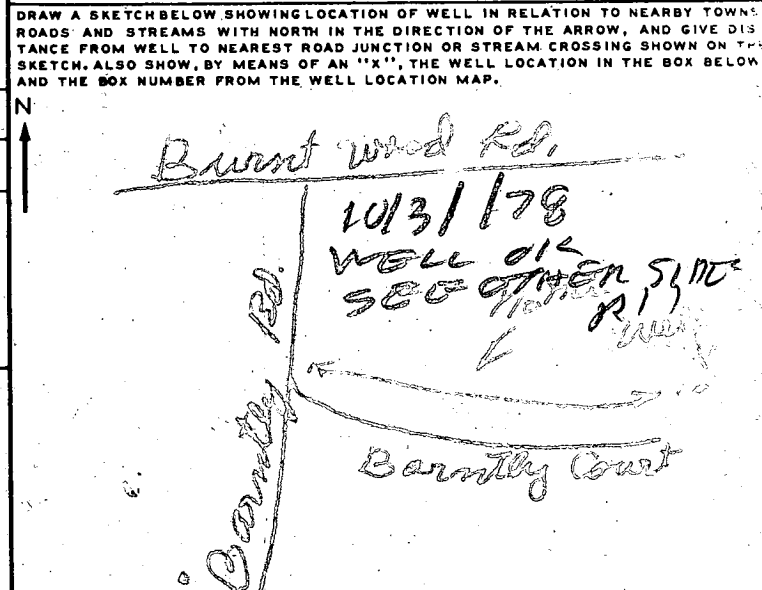 DRAW A SKETCH BELOW SHOWING LOCATION OF WELL IN RELATION TO NEARBY TOWNS
ROADS AND STREAMS WITH NORTH IN THE DIRECTION OF THE ARROW, AND GIVE DIS
TANCE FROM WELL TO NEAREST ROAD JUNCTION OR STREAM CROSSING SHOWN ON THE
SKETCH. ALSO SHOW, BY MEANS OF AN "X", THE WELL LOCATION IN THE BOX BELOW
AND THE BOX NUMBER FROM THE WELL LOCATION MAP.
N
Burnt Wood Rd.
10/31/78
WELL OK
SEE OTHER SIDE
Well
Rd.
Barntly Court